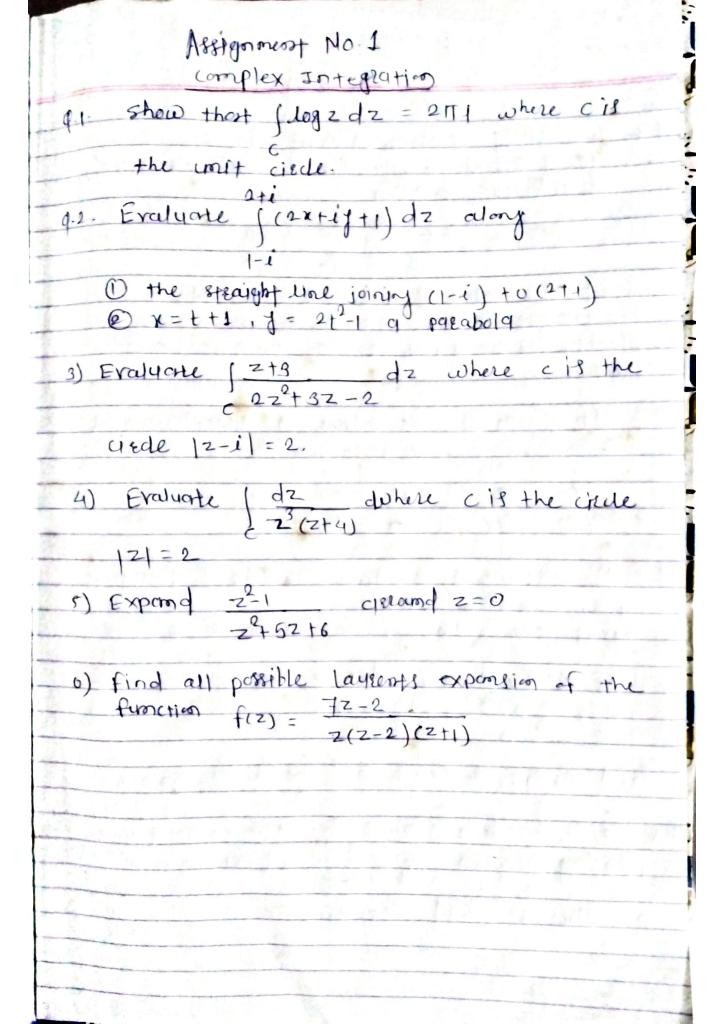 Assignment No. 1
Complex Integration
Q.1. Show that ∫ log z dz = 2πi where c is
c
the unit circle.
2+i
Q.2. Evaluate ∫ (2x+iy+1) dz along
1-i
① the straight line joining (1-i) to (2+i)
② x = t+1, y = 2t²-1 a parabola
3) Evaluate ∫ z+3 / 2z²+3z-2 dz where c is the
c
circle |z-i| = 2.
4) Evaluate ∫ dz / z³(z+4) where c is the circle
c
|z| = 2
5) Expand z²-1 / z²+5z+6 around z=0
6) find all possible Laurents expansion of the
function f(z) = 7z-2 / z(z-2)(z+1)